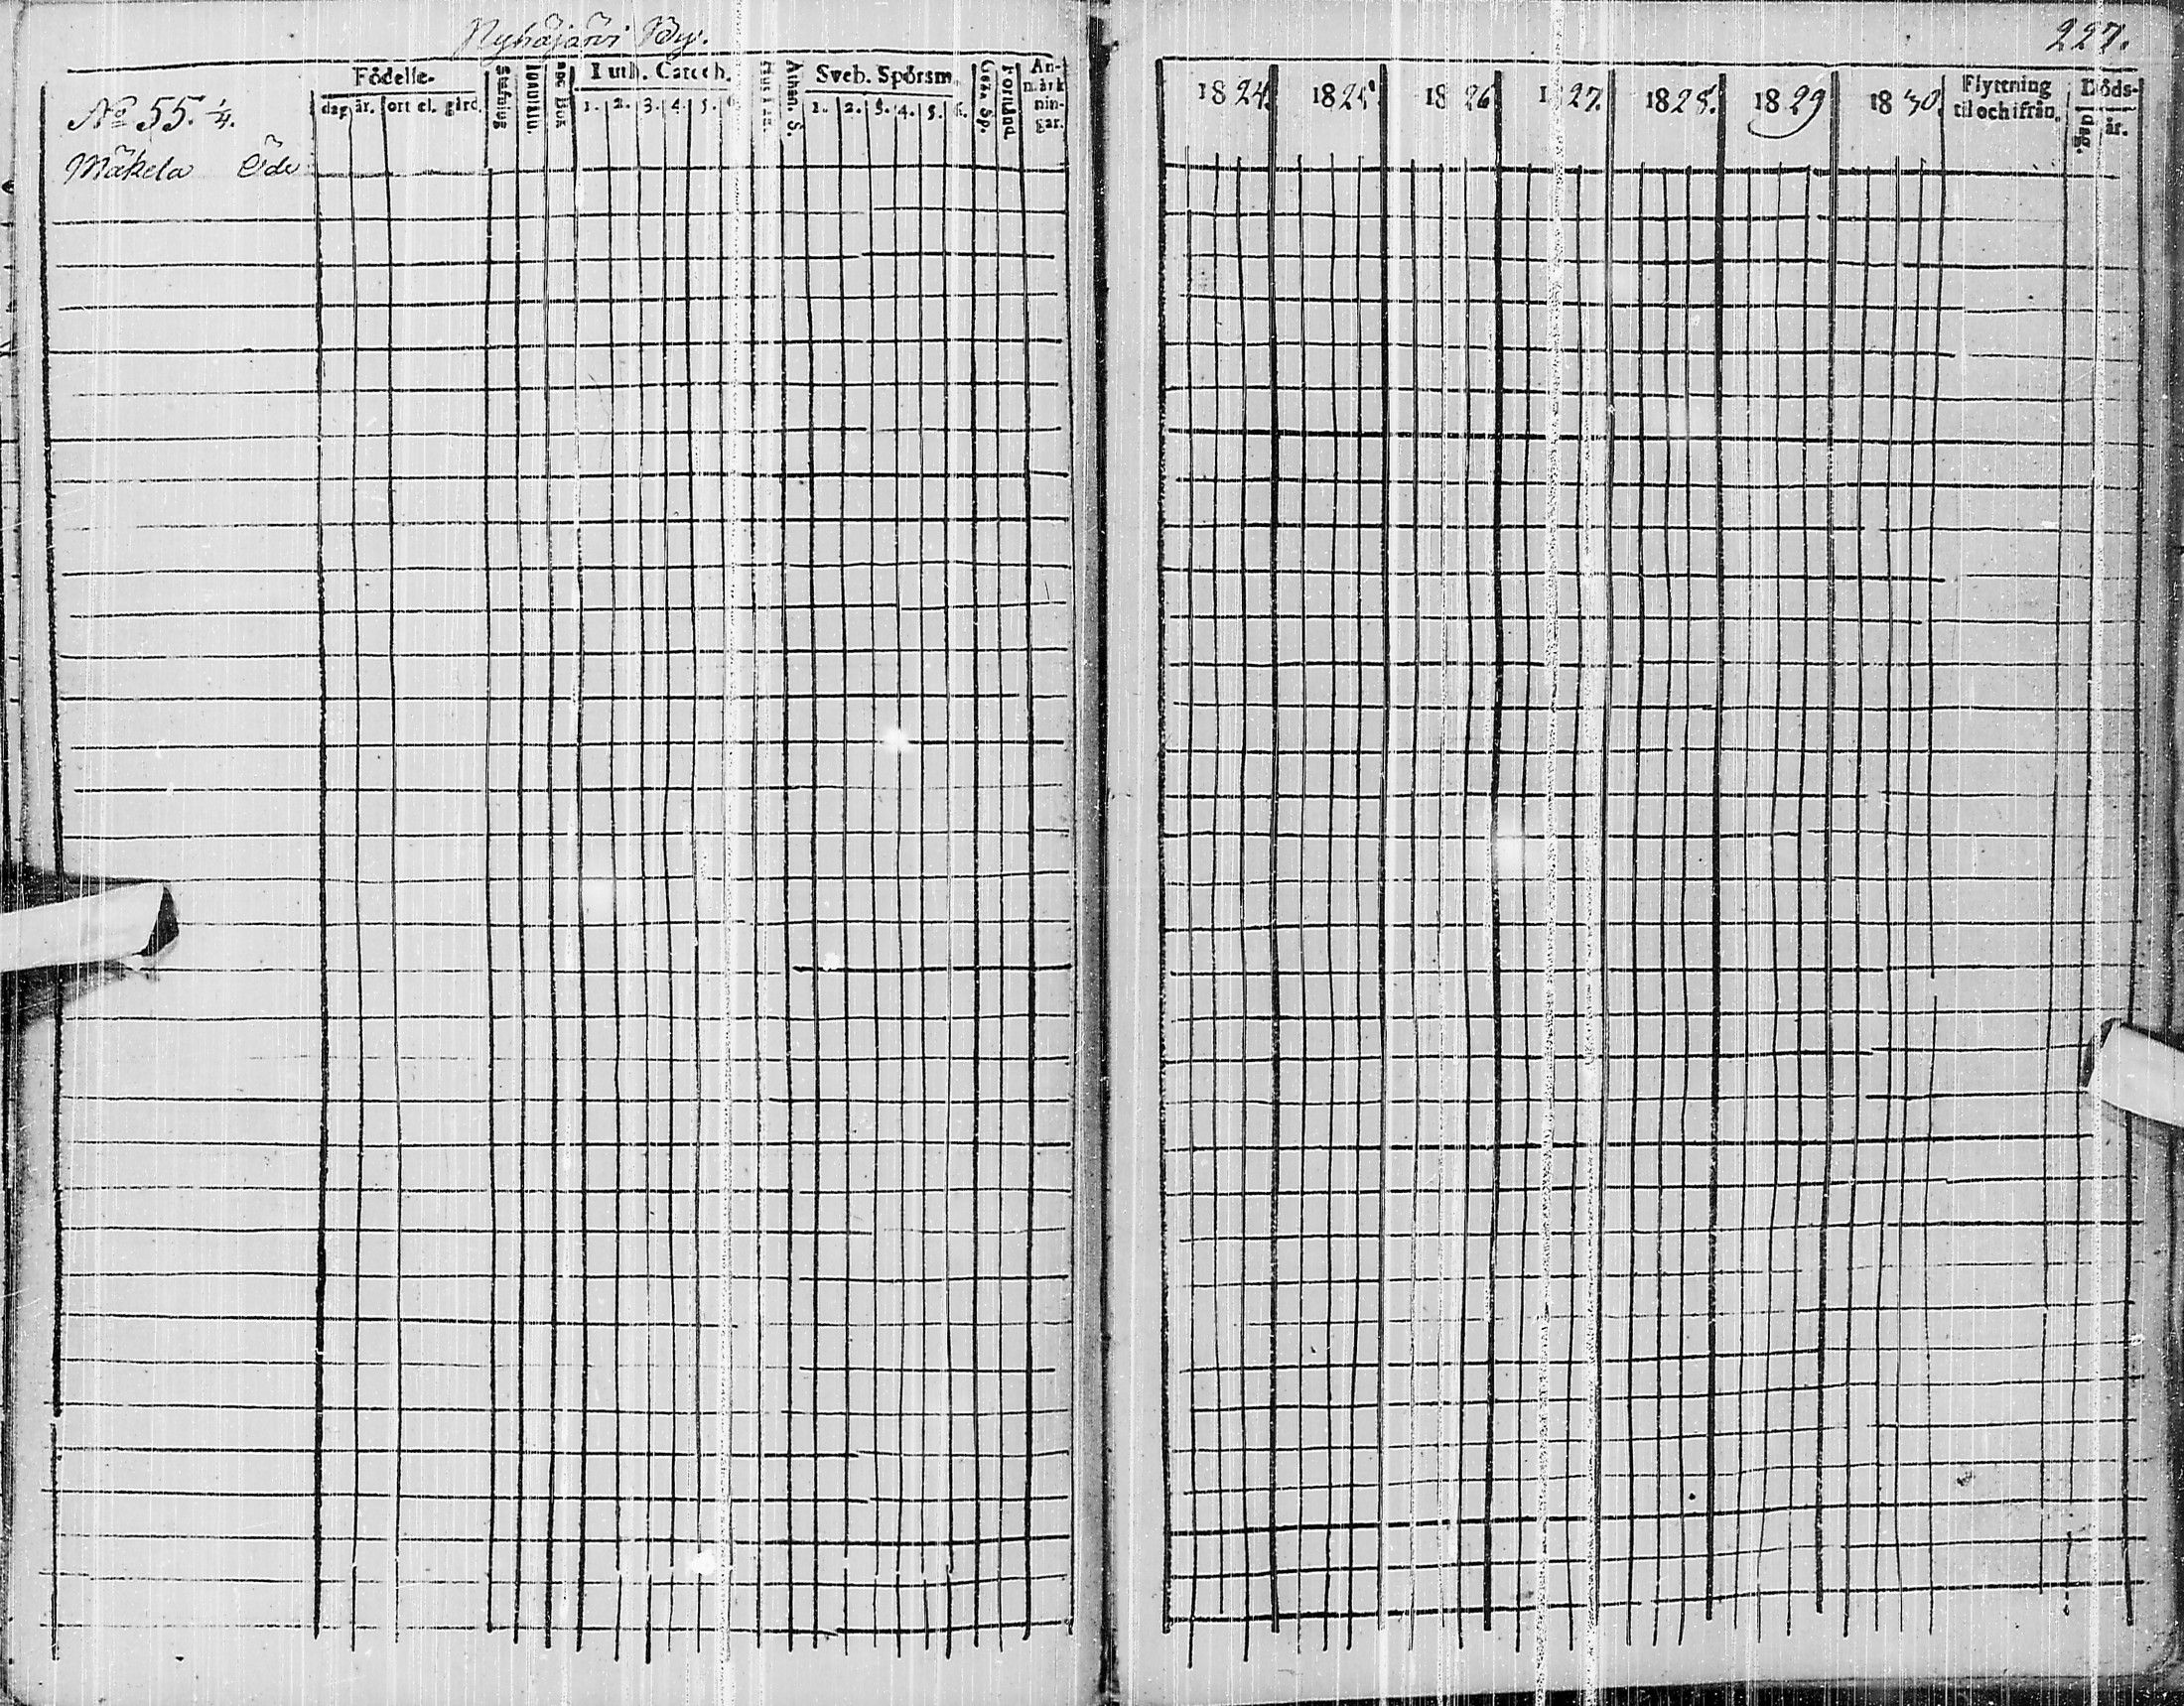 Pyhäjärvi By.
227.
No 55. 1/4.
Mäkelä Öde
Födelse-
dag. år. ort el. gård.
Stafning
Innanläsn.
ABC Bok
Luth. Catech.
1. 2. 3. 4. 5. 6.
Hus Taf.
Athan. S.
Sveb. Spörsm.
1. 2. 3. 4. 5. 6.
Gez. Sp.
Förstånd.
An-
märk
nin-
gar.
1824. 1825 1826 1827. 1828. 1829 1830.
Flyttning
til och ifrån.
Döds-
dag. år.